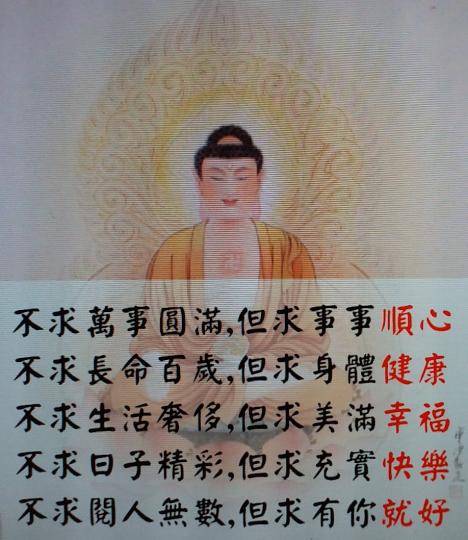 不求萬事圓滿,但求事事順心
不求長命百歲,但求身體健康
不求生活奢侈,但求美滿幸福
不求日子精彩,但求充實快樂
不求閱人無數,但求有你就好